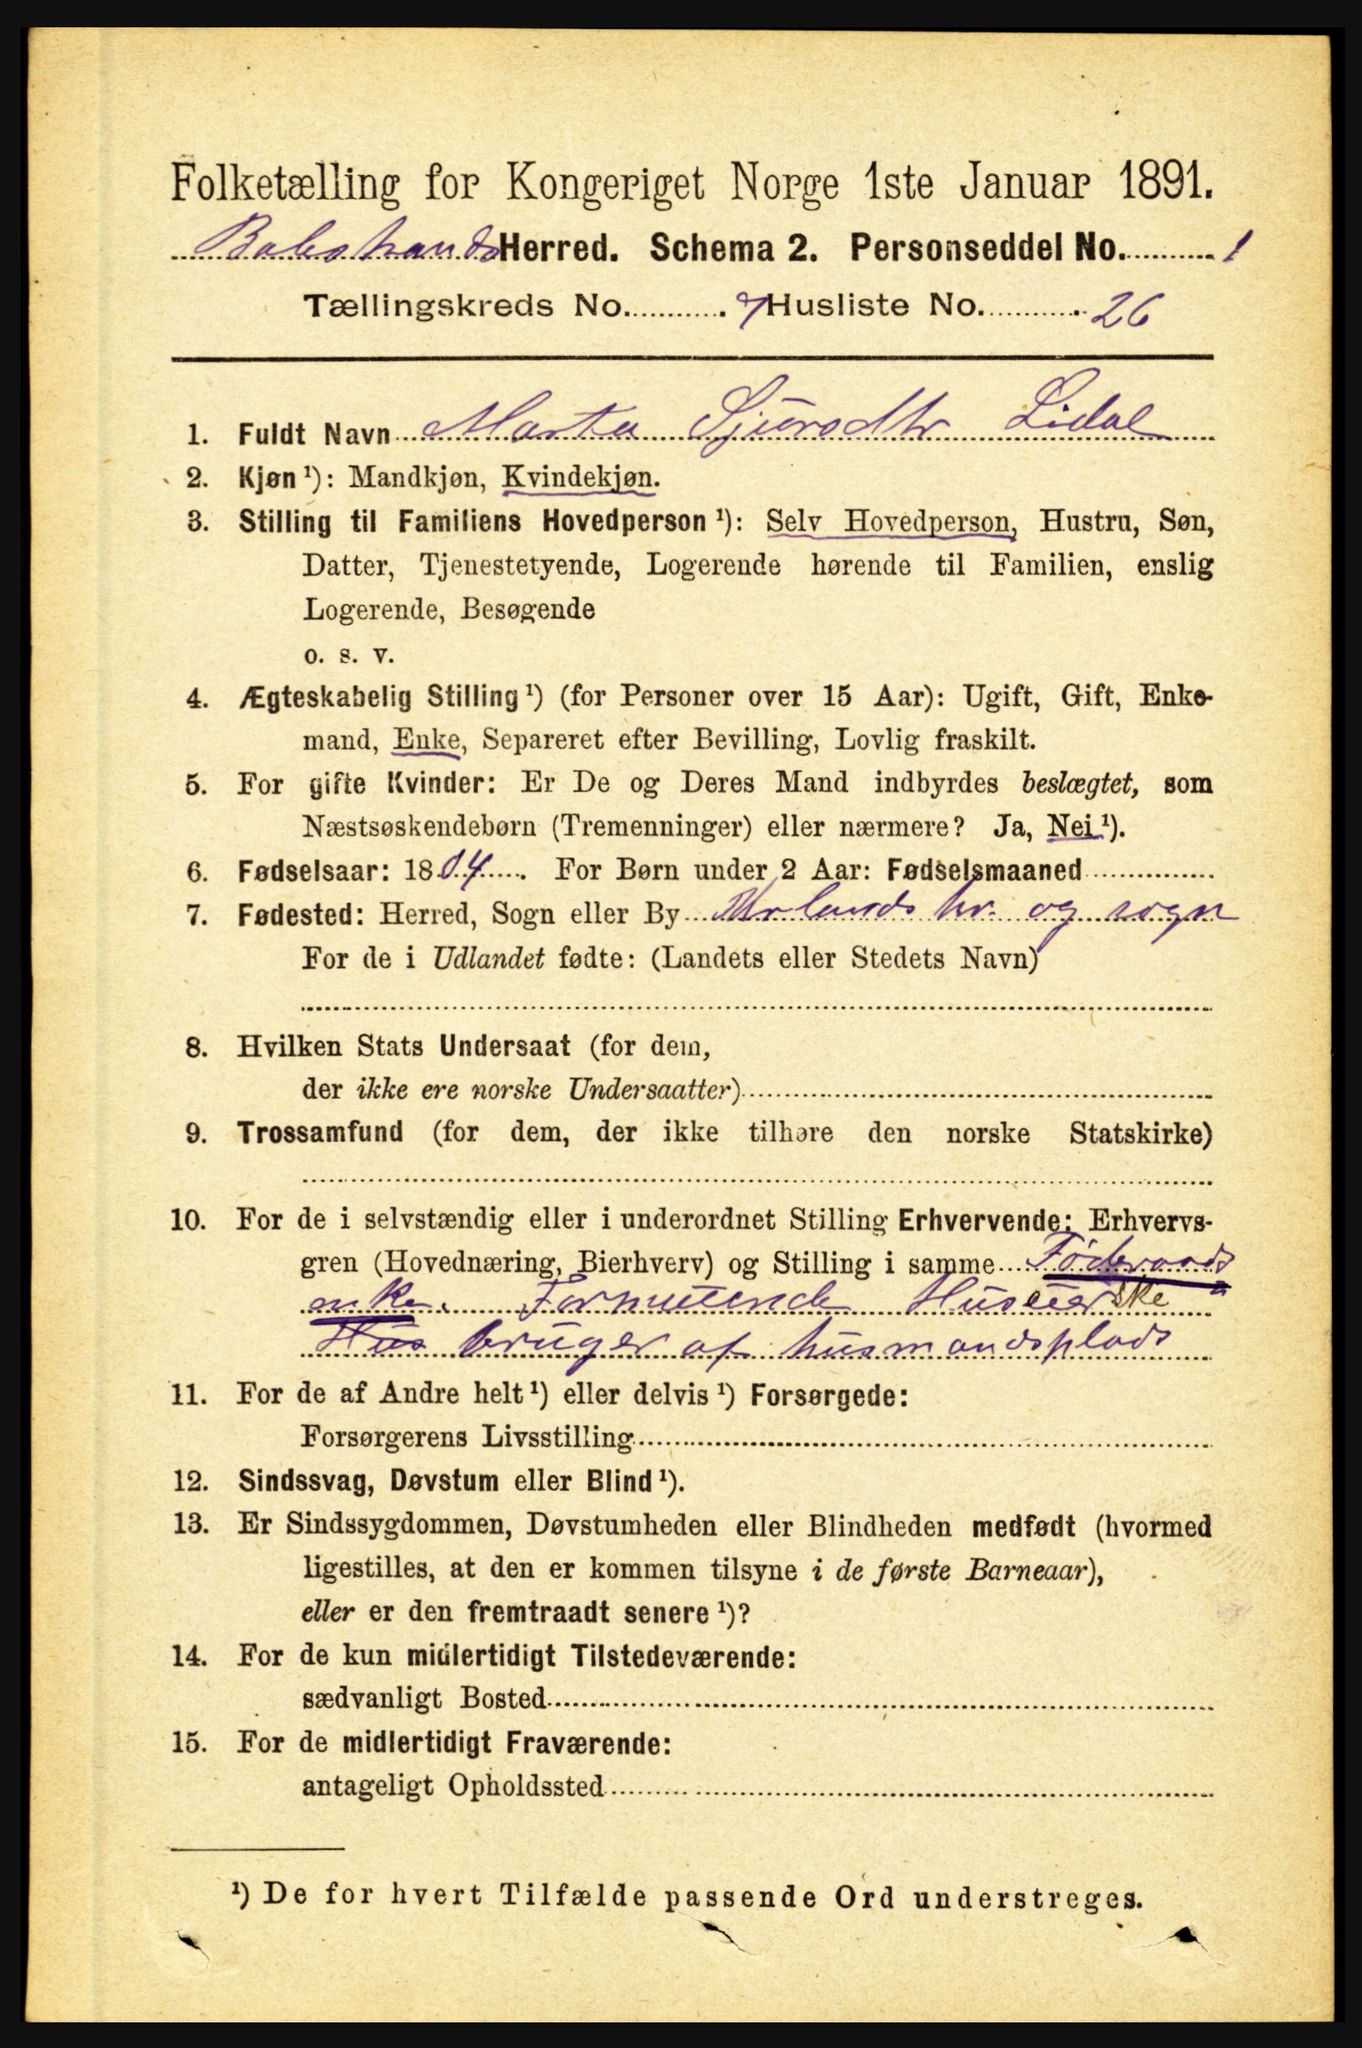 Folketælling for Kongeriget Norge 1ste Januar 1891.
Balestrands Herred. Schema 2. Personseddel No. 1
Tællingskreds No. 7 Husliste No. 26
1. Fuldt Navn Marta Sjursdtr Lidal
2. Kjøn ¹): Mandkjøn, Kvindekjøn.
3. Stilling til Familiens Hovedperson ¹): Selv Hovedperson, Hustru, Søn,
Datter, Tjenestetyende, Logerende hørende til Familien, enslig
Logerende, Besøgende
o. s. v.
4. Ægteskabelig Stilling ¹) (for Personer over 15 Aar): Ugift, Gift, Enke-
mand, Enke, Separeret efter Bevilling, Lovlig fraskilt.
5. For gifte Kvinder: Er De og Deres Mand indbyrdes beslægtet, som
Næstsøskendebørn (Tremenninger) eller nærmere? Ja, Nei ¹).
6. Fødselsaar: 1804. For Børn under 2 Aar: Fødselsmaaned
7. Fødested: Herred, Sogn eller By Urlands hr. og sogn
For de i Udlandet fødte: (Landets eller Stedets Navn)
8. Hvilken Stats Undersaat (for dem,
der ikke ere norske Undersaatter)
9. Trossamfund (for dem, der ikke tilhøre den norske Statskirke)
10. For de i selvstændig eller i underordnet Stilling Erhvervende: Erhvervs-
gren (Hovednæring, Bierhverv) og Stilling i samme Føderaads
enke. Formuende Huseierske
Hus bruger af husmandsplads
11. For de af Andre helt ¹) eller delvis ¹) Forsørgede:
Forsørgerens Livsstilling
12. Sindssvag, Døvstum eller Blind ¹).
13. Er Sindssygdommen, Døvstumheden eller Blindheden medfødt (hvormed
ligestilles, at den er kommen tilsyne i de første Barneaar),
eller er den fremtraadt senere ¹)?
14. For de kun midlertidigt Tilstedeværende:
sædvanligt Bosted
15. For de midlertidigt Fraværende:
antageligt Opholdssted
¹) De for hvert Tilfælde passende Ord understreges.